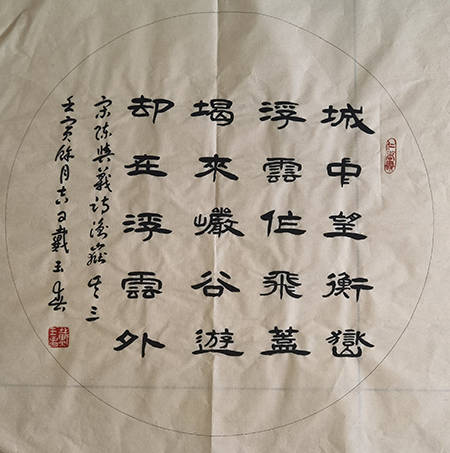 城中望衡嶽
浮雲作飛蓋
揭来巖谷遊
却在浮雲外
宋陈與義詩嶽其三
壬寅馀月吉日戴玉